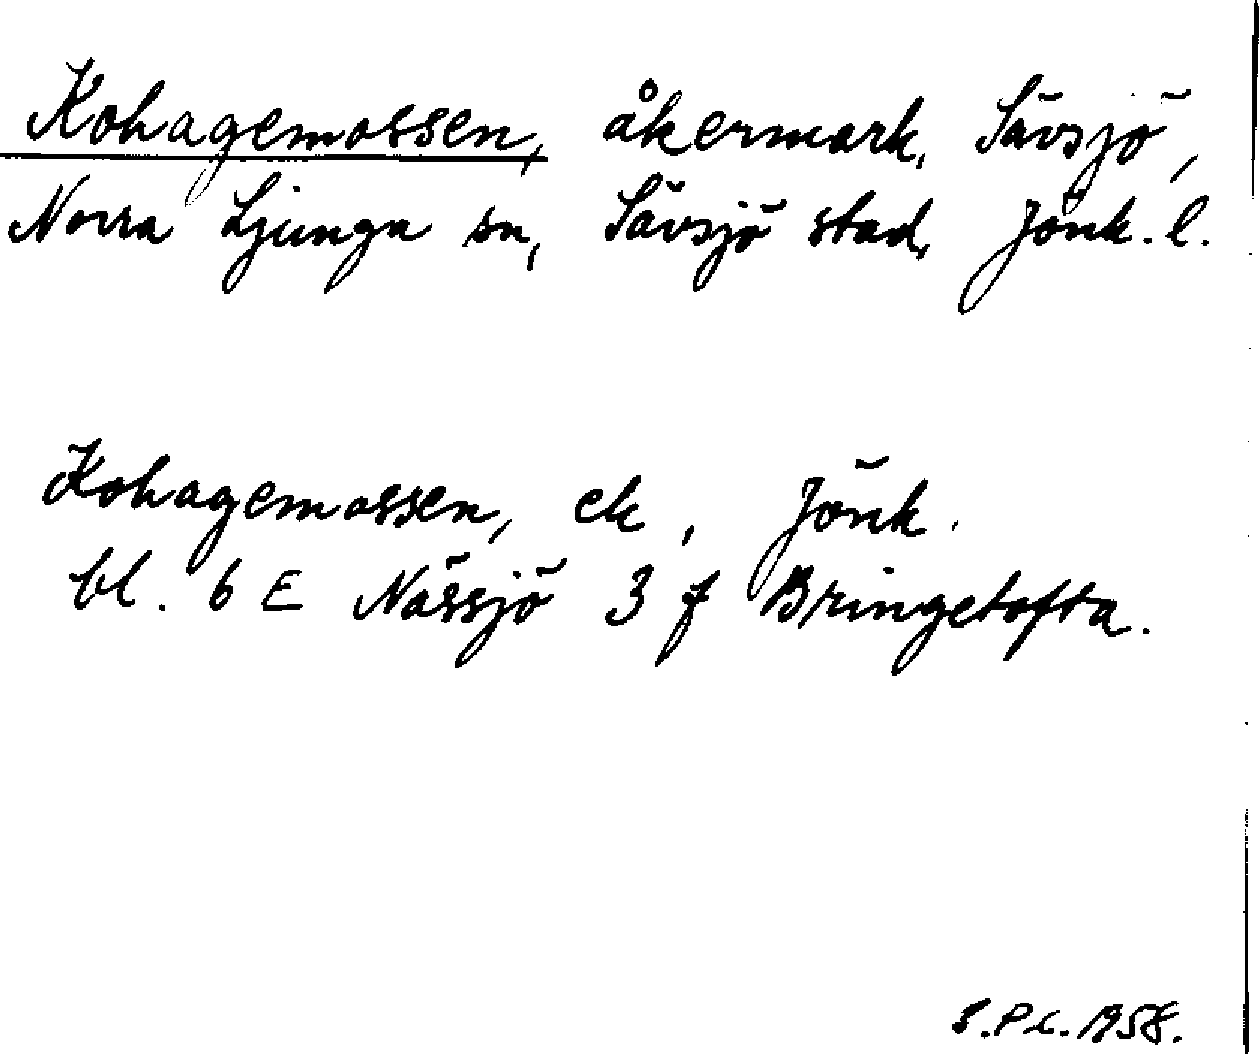 Kohagemossen, åkermark, Sävsjö,
Norra Ljunga sn, Sävsjö stad, Jönk. l.
Kohagemossen, ek, Jönk.
bl. 6 E Nässjö 3 f Bringetofta.
S.P.L. 1958.